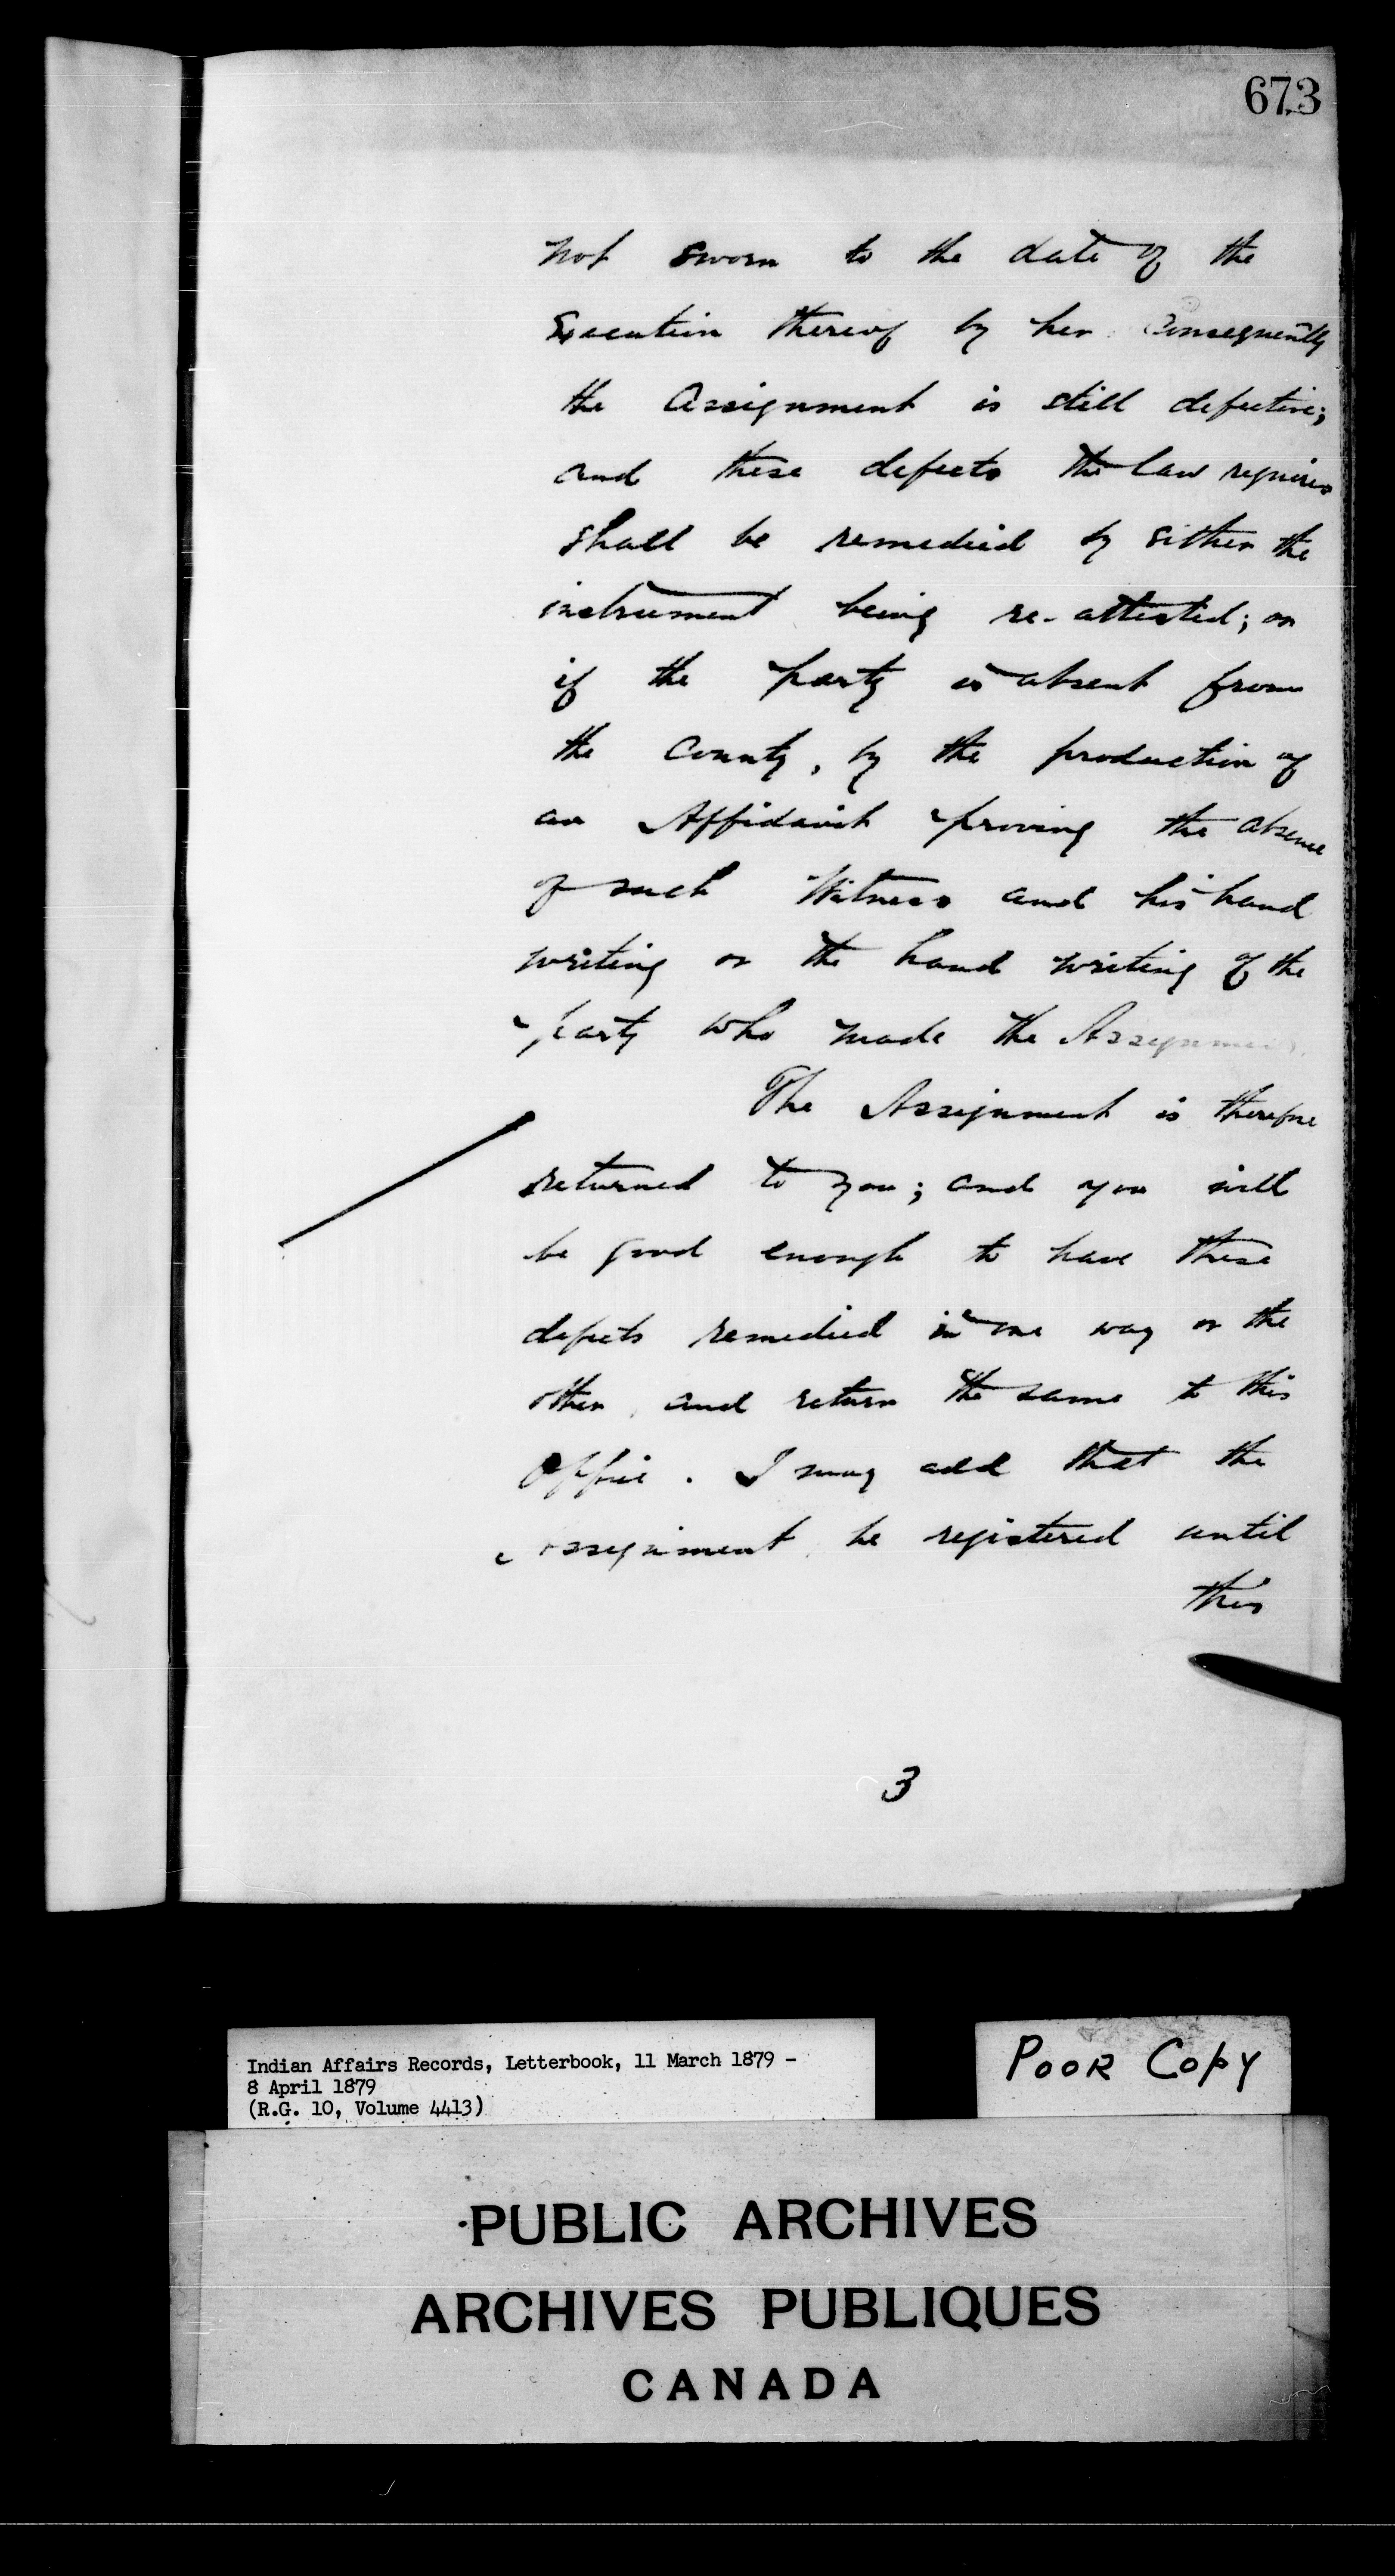 673
not sworn to the date of the
Execution thereof by her. Consequently
the Assignment is still defective;
and these defects the law requires
shall be remedied by either the
instrument being re-attested; or
if the party is absent from
the County, by the production of
an Affidavit proving the absence
of such Witness and his hand
writing or the hand writing of the
party who made the Assignment.
The Assignment is therefore
returned to you; and you will
be good enough to have these
defects remedied in one way or the
other and return the same to this
Office. I may add that the
assignment be registered until
this
3
Indian Affairs Records, Letterbook, 11 March 1879 -
8 April 1879
(R.G. 10, Volume 4413)
POOR COPY
PUBLIC ARCHIVES
ARCHIVES PUBLIQUES
CANADA